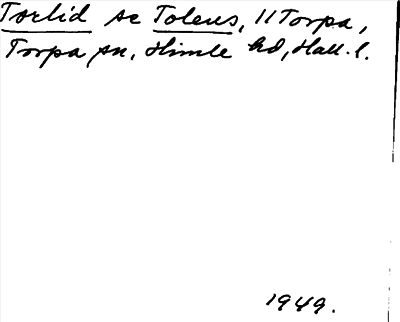 Torlid se Toleus, 11 Torpa,
Torpa sn, Himle hd, Hall. l.
1949.